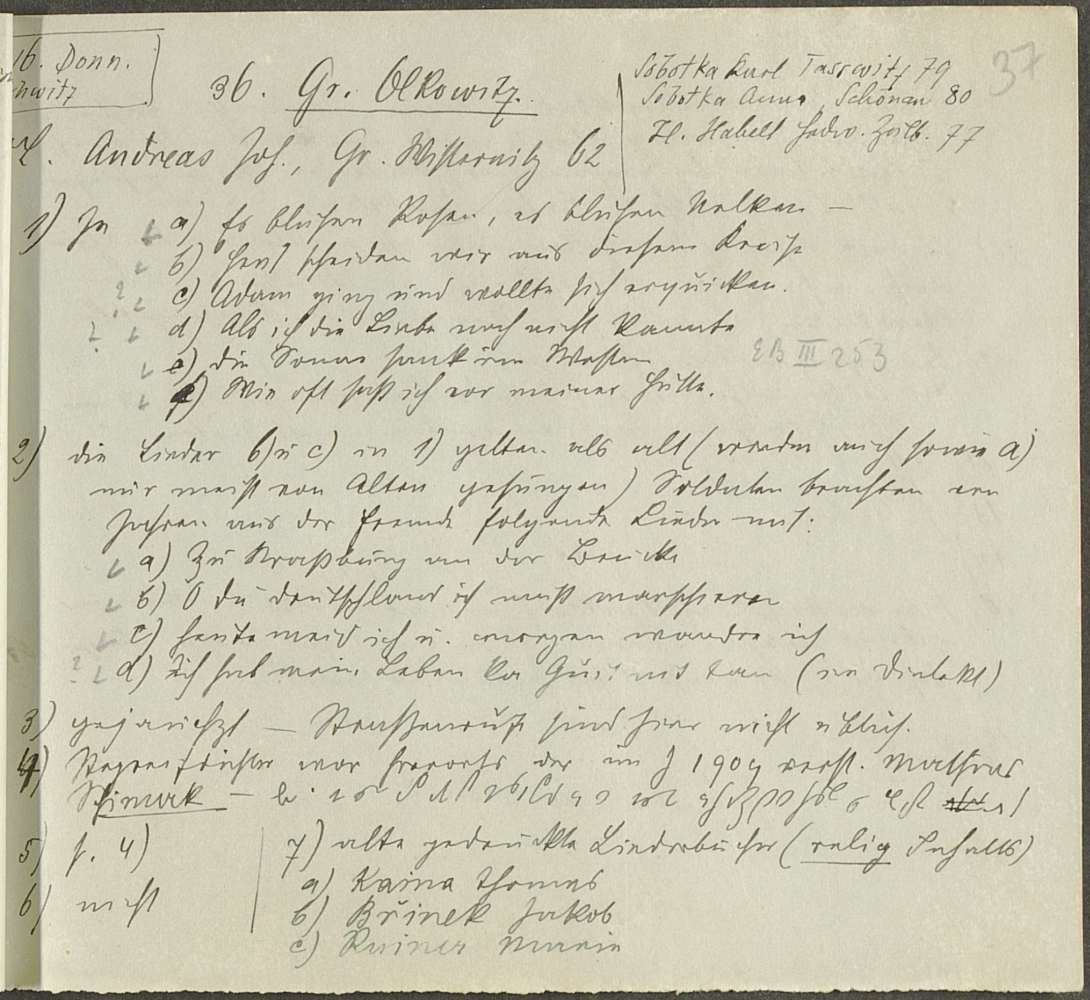 16. Donn.
hwitz
36. Gr. Olkowitz.
Sobotka Karl Tasswitz 79
Sobotka Anna, Schönau 80
Hl. Habelt Hedw. Zeilb. 77
37
Andreas Joh., Gr. Wisternitz 62
1) Ja a) Es blühen Rosen, es blühen Nelken —
b) Heut scheiden wir aus diesem Kreise
? c) Adam ging und wollte sich erquicken.
? d) Als ich die Liebe noch nicht kannte
e) die Sonne sank im Westen
EB III 253
f) Wie oft saß ich vor meiner Hütte.
2) die Lieder b) u c) in 1) gelten als alt (werden auch sowie a)
nur meist von Alten gesungen) Soldaten brachten vor
Jahren aus der Fremde folgende Lieder mit:
a) Zu Straßburg an der Brücke
b) O du Deutschland ich muß marschieren
c) heute meid ich u. morgen wandre ich
? d) Ich hab mein Leben ka Gut's nit tan (im Dialekt)
3) gejauchzt — Straßenrufe sind hier nicht üblich.
4) Stegreifdichter war hierorts der im J 1909 verst. Mathias
Schimak —
5) s. 4)
6) nicht
7) alte gedruckte Liederbücher (relig Inhalts)
a) Kaina Thomas
b) Břinek Jakob
c) Rainer Marie